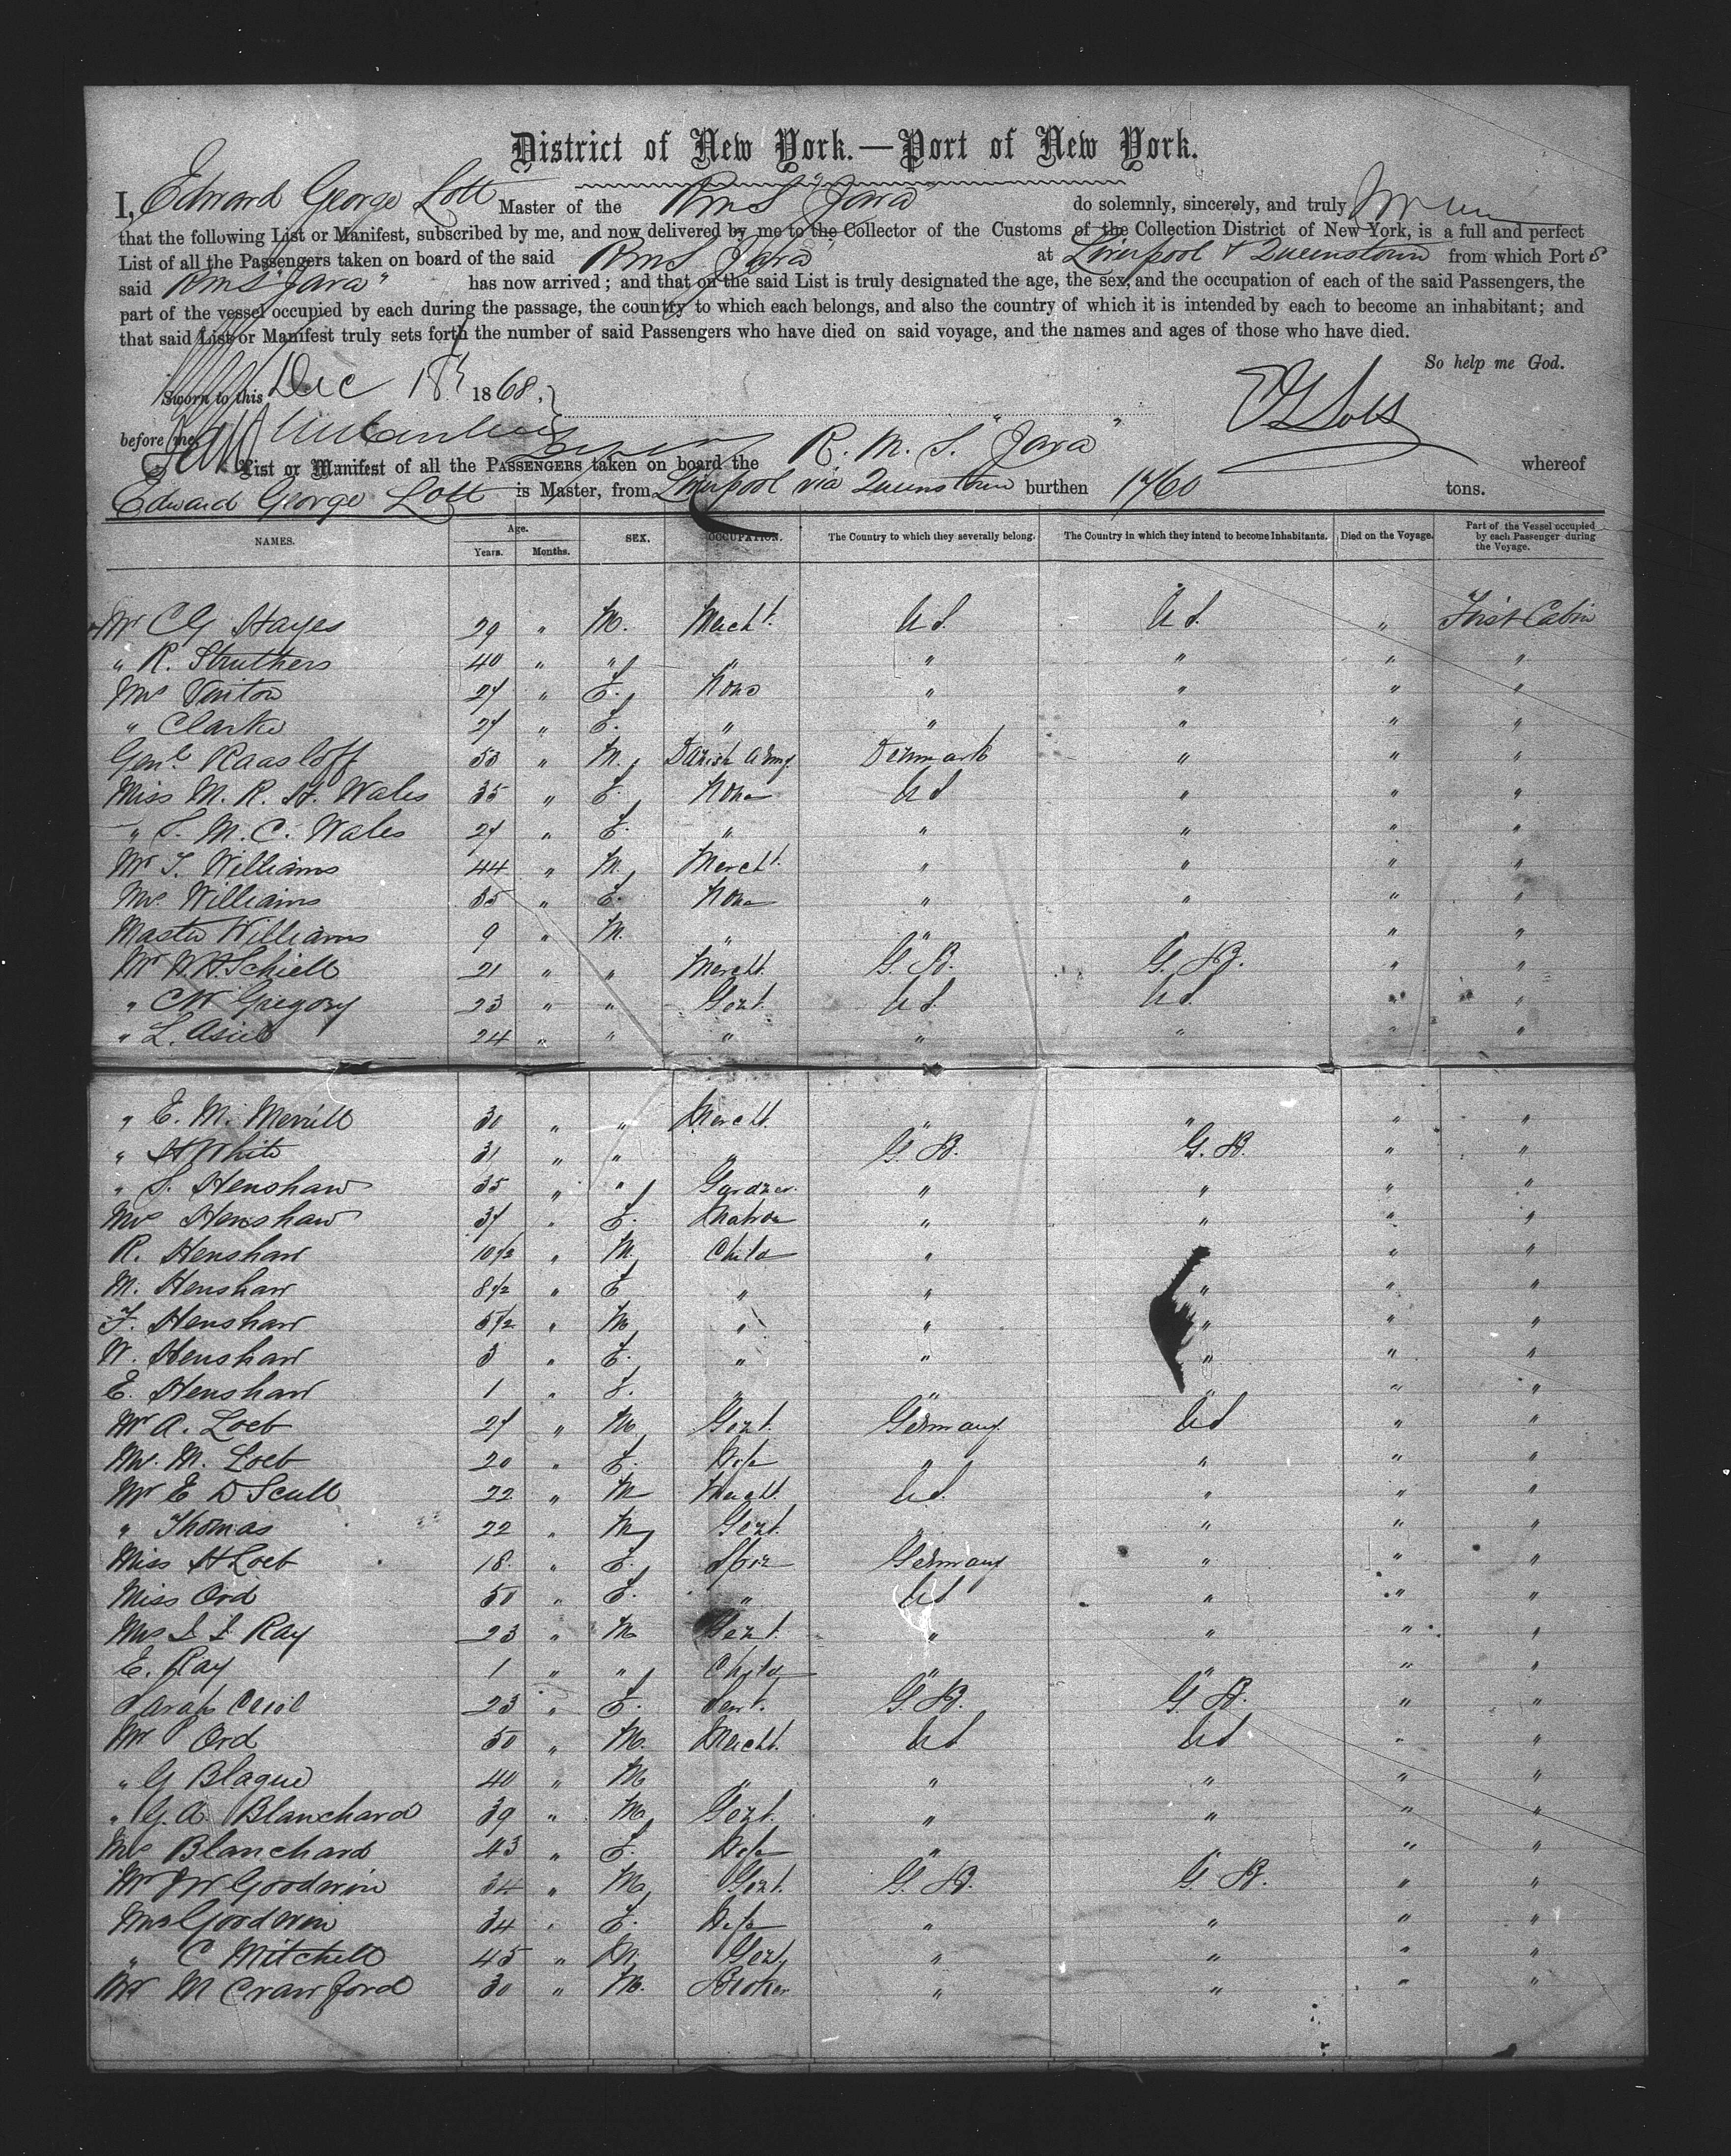 District of New York.—Port of New York.
I, Edward George Lott Master of the RMS "Java" do solemnly, sincerely, and truly
that the following List or Manifest, subscribed by me, and now delivered by me to the Collector of the Customs of the Collection District of New York, is a full and perfect
List of all the Passengers taken on board of the said RMS "Java" at Liverpool & Queenstown from which Port s
said RMS "Java" has now arrived; and that on the said List is truly designated the age, the sex, and the occupation of each of the said Passengers, the
part of the vessel occupied by each during the passage, the country to which each belongs, and also the country of which it is intended by each to become an inhabitant; and
that said List or Manifest truly sets forth the number of said Passengers who have died on said voyage, and the names and ages of those who have died.
So help me God.
Sworn to this Dec 18th 1868.
EG Lott
before me
List or Manifest of all the PASSENGERS taken on board the R. M. S. "Java" whereof
Edward George Lott is Master, from Liverpool via Queenstown burthen 1760 tons.
NAMES. Age. Years. Months. SEX. OCCUPATION. The Country to which they severally belong. The Country in which they intend to become Inhabitants. Died on the Voyage. Part of the Vessel occupied by each Passenger during the Voyage.
Mr C G Hayes 29 " M. Mercht. U S. U S. " First Cabin
" R. Struthers 40 " " " " " " "
Mrs Vinton 27 " F. None " " " "
" Clarke 27 " F. " " " " "
Genl. Raasloff 53 " M. Danish Army Denmark " " "
Miss M. R. H. Wales 35 " F. None U S " " "
" S. M. C. Wales 27 " F. " " " " "
Mr T. Williams 44 " M. Mercht. " " " "
Mrs. Williams 35 " F. None " " " "
Master Williams 9 " M. " " " " "
Mr W. H. Schiell 21 " " Mercht. G. B. G. B. " "
" C W Gregory 23 " " Gent. U S. U S. " "
" L. Asiel 24 " " " " " " "
" E. M. Merrill 30 " " Mercht. " " " "
" H White 31 " " " G. B. G. B. " "
" S. Henshaw 35 " " Gardner. " " " "
Mrs Henshaw 37 " F. Matron " " " "
R. Henshaw 10 1/2 " M. Child " " " "
M. Henshaw 8 1/2 " F " " " " "
F. Henshaw 5 1/2 " M " " " " "
W. Henshaw 3 " F. " " " " "
E. Henshaw 1 " F. " " " " "
Mr A. Loeb 27 " M Gent. Germany U S " "
Mrs. M. Loeb 20 " F. Wife " " " "
Mr E D Scull 22 " M Mercht. U S. " " "
" Thomas 22 " M Gent. " " " "
Miss H Loeb 18 " F. Spin Germany " " "
Miss Ord 50 " F. " U S " " "
Mrs S S Ray 23 " M Gent. " " " "
E. Ray 1 " " Child " " " "
Sarah 23 " F. Servt. G. B. G. B. " "
Mr P Ord 50 " M. Mercht. U S U S " "
" G Blague 40 " M " " " " "
" G. A. Blanchard 39 " M Gent. " " " "
Mrs Blanchard 43 " F. Wife " " "
Mr J W Goodwin 34 " M Gent. G. B. G. B. " "
Mrs Goodwin 34 " F. Wife " " " "
" C Mitchell 45 " M Gent. " " " "
Mr M Crawford 30 " M. Broker " " " "